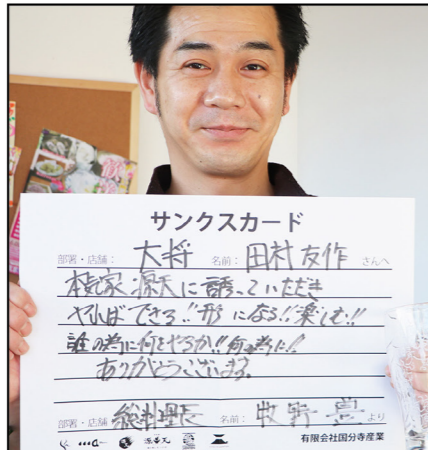 サンクスカード
部署・店舗: 大将 名前: 田村友作 さんへ
本気家 源天に誘っていただき
やればできる!!形になる!!楽しむ!!
誰の為に何をやるか!!何の為に!!
ありがとうございます。
部署・店舗 総料理長 名前: 牧野 より
有限会社国分寺産業